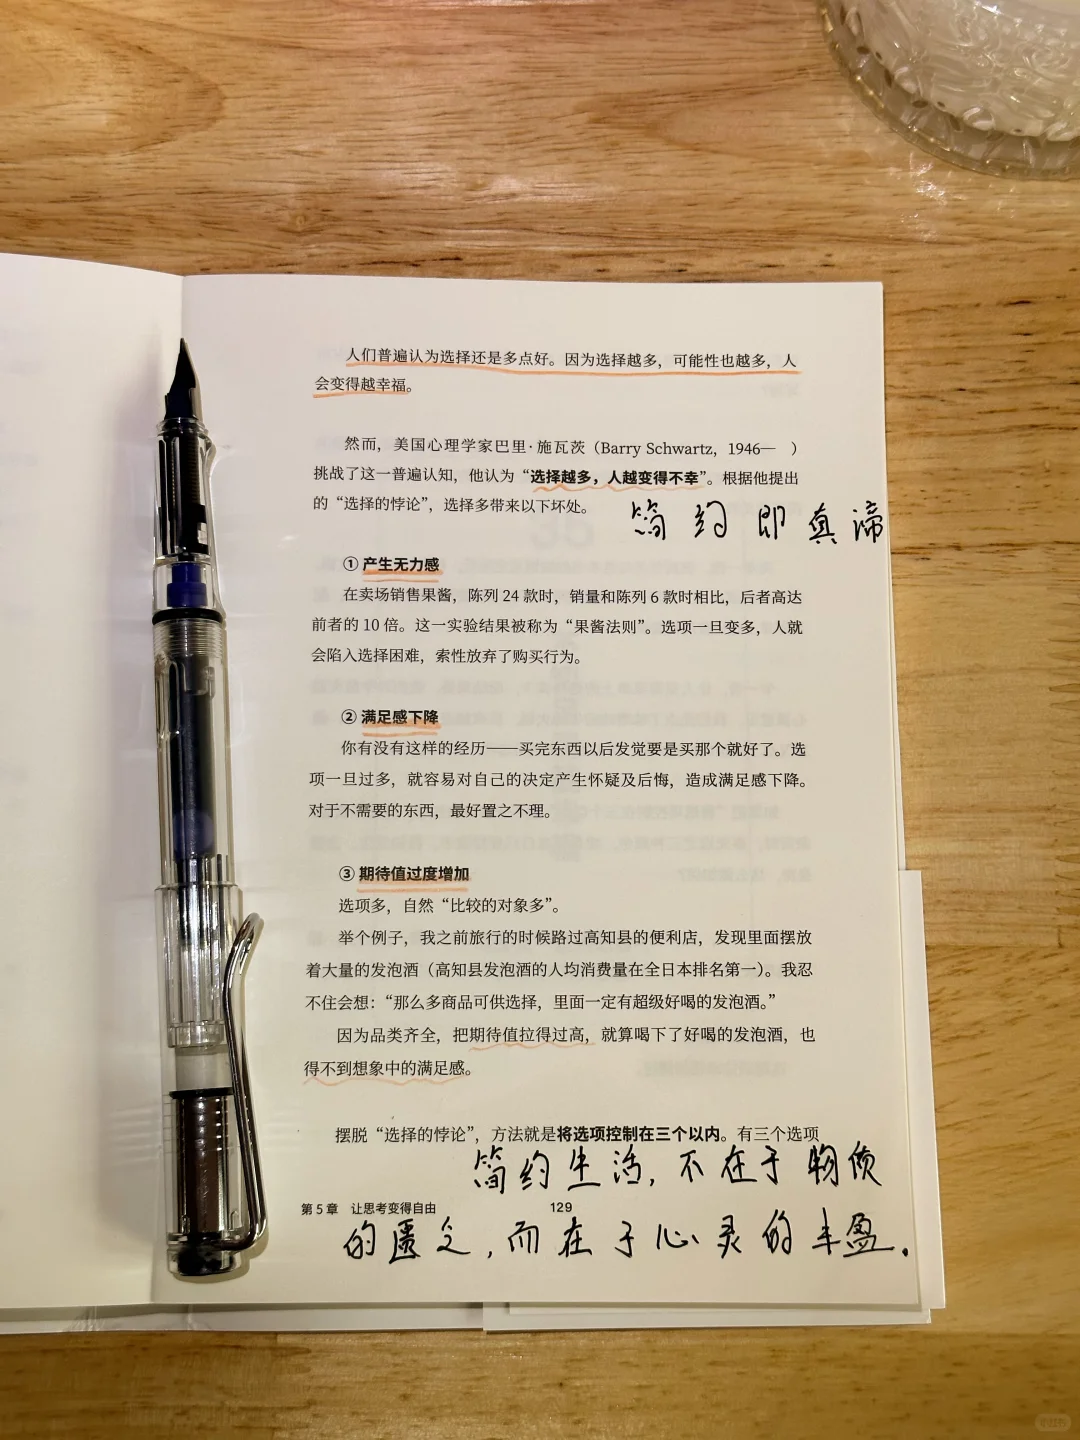 人们普遍认为选择还是多点好。因为选择越多，可能性也越多，人
会变得越幸福。
然而，美国心理学家巴里·施瓦茨（Barry Schwartz，1946— ）
挑战了这一普遍认知，他认为“选择越多，人越变得不幸”。根据他提出
的“选择的悖论”，选择多带来以下坏处。
简约即真谛
① 产生无力感
在卖场销售果酱，陈列 24 款时，销量和陈列 6 款时相比，后者高达
前者的 10 倍。这一实验结果被称为“果酱法则”。选项一旦变多，人就
会陷入选择困难，索性放弃了购买行为。
② 满足感下降
你有没有这样的经历——买完东西以后发觉要是买那个就好了。选
项一旦过多，就容易对自己的决定产生怀疑及后悔，造成满足感下降。
对于不需要的东西，最好置之不理。
③ 期待值过度增加
选项多，自然“比较的对象多”。
举个例子，我之前旅行的时候路过高知县的便利店，发现里面摆放
着大量的发泡酒（高知县发泡酒的人均消费量在全日本排名第一）。我忍
不住会想：“那么多商品可供选择，里面一定有超级好喝的发泡酒。”
因为品类齐全，把期待值拉得过高，就算喝下了好喝的发泡酒，也
得不到想象中的满足感。
摆脱“选择的悖论”，方法就是将选项控制在三个以内。有三个选项
简约生活，不在于物质
第 5 章 让思考变得自由 129
的匮乏，而在于心灵的丰盈。
小红书